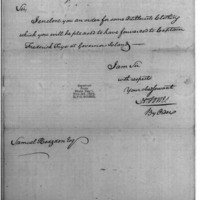 Sir,
I enclose you an order for some Artillery Clothing
which you will be pleased to have forwarded to Captain
Frederick Frye at Governors Island
I am Sir
with respect
Your obed Servant
Samuel Hodgdon Esq